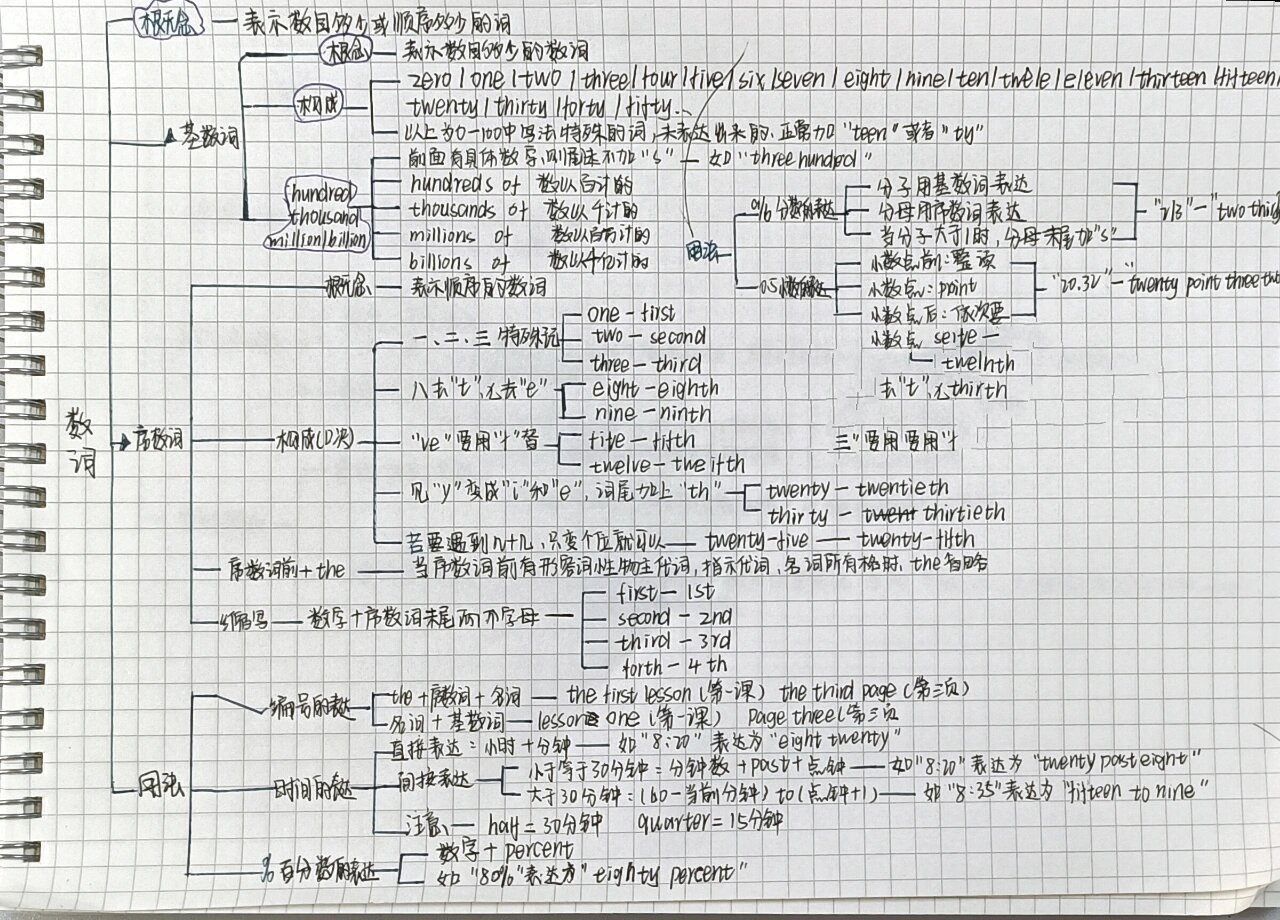 概念 表示数目多少或顺序多少的词
概念 表示数目多少的数词
zero / one / two / three / four / five / six / seven / eight / nine / ten / twele / eleven / thirteen / fifteen
构成 twenty / thirty / forty / fifty...
基数词
以上为0-100中写法特殊的词,未表达出来的,正常加"teen"或者"ty"
前面有具体数字,则尾走不加"s" — 如"three hundred"
hundred hundreds of 数以百计的
thousand thousands of 数以千计的
million/billion millions of 数以百万计的
billions of 数以十亿计的
用法
% 分数的表达 分子用基数词表达
分母用序数词表达 "2/3" — "two thi
当分子大于1时,分母末尾加"s"
0.5 小数的表达 小数点前:整读
小数点:point "20.32" — twenty point three two
小数点后:依次要
小数点 seite —
twelnth
去"t",九thirth
三"要用要用"f
概念 表示顺序的数词
一、二、三 特殊记 one - first
two - second
three - third
八去"t",九去"e" eight - eighth
nine - ninth
数词
序数词 构成(口决) "ve"要用"f"替 five - fifth
twelve - twelfth
见"y"变成"i"和"e",词尾加上"th" twenty - twentieth
thirty - twent thirtieth
若要遇到几+几,只变个位就可以 — twenty-five — twenty-fifth
序数词前+the 当序数词前有形容词性物主代词,指示代词,名词所有格时,the省略
缩写 — 数字+序数词末尾两个字母 first - 1st
second - 2nd
third - 3rd
forth - 4th
编号的表达 the+序数词+名词 — the first lesson (第一课) the third page (第三页)
名词+基数词 — lesson one (第一课) page three (第三页
直接表达:小时+分钟 — 如"8:20"表达为"eight twenty"
用法 时间的表达 间接表达 小于等于30分钟:分钟数+past+点钟 — 如"8:20"表达为"twenty past eight"
大于30分钟:(60-当前分钟) to (点钟+1) — 如"8:35"表达为"fifteen to nine"
注意 — half = 30分钟 quarter = 15分钟
% 百分数的表达 数字+percent
如"80%"表达为"eighty percent"